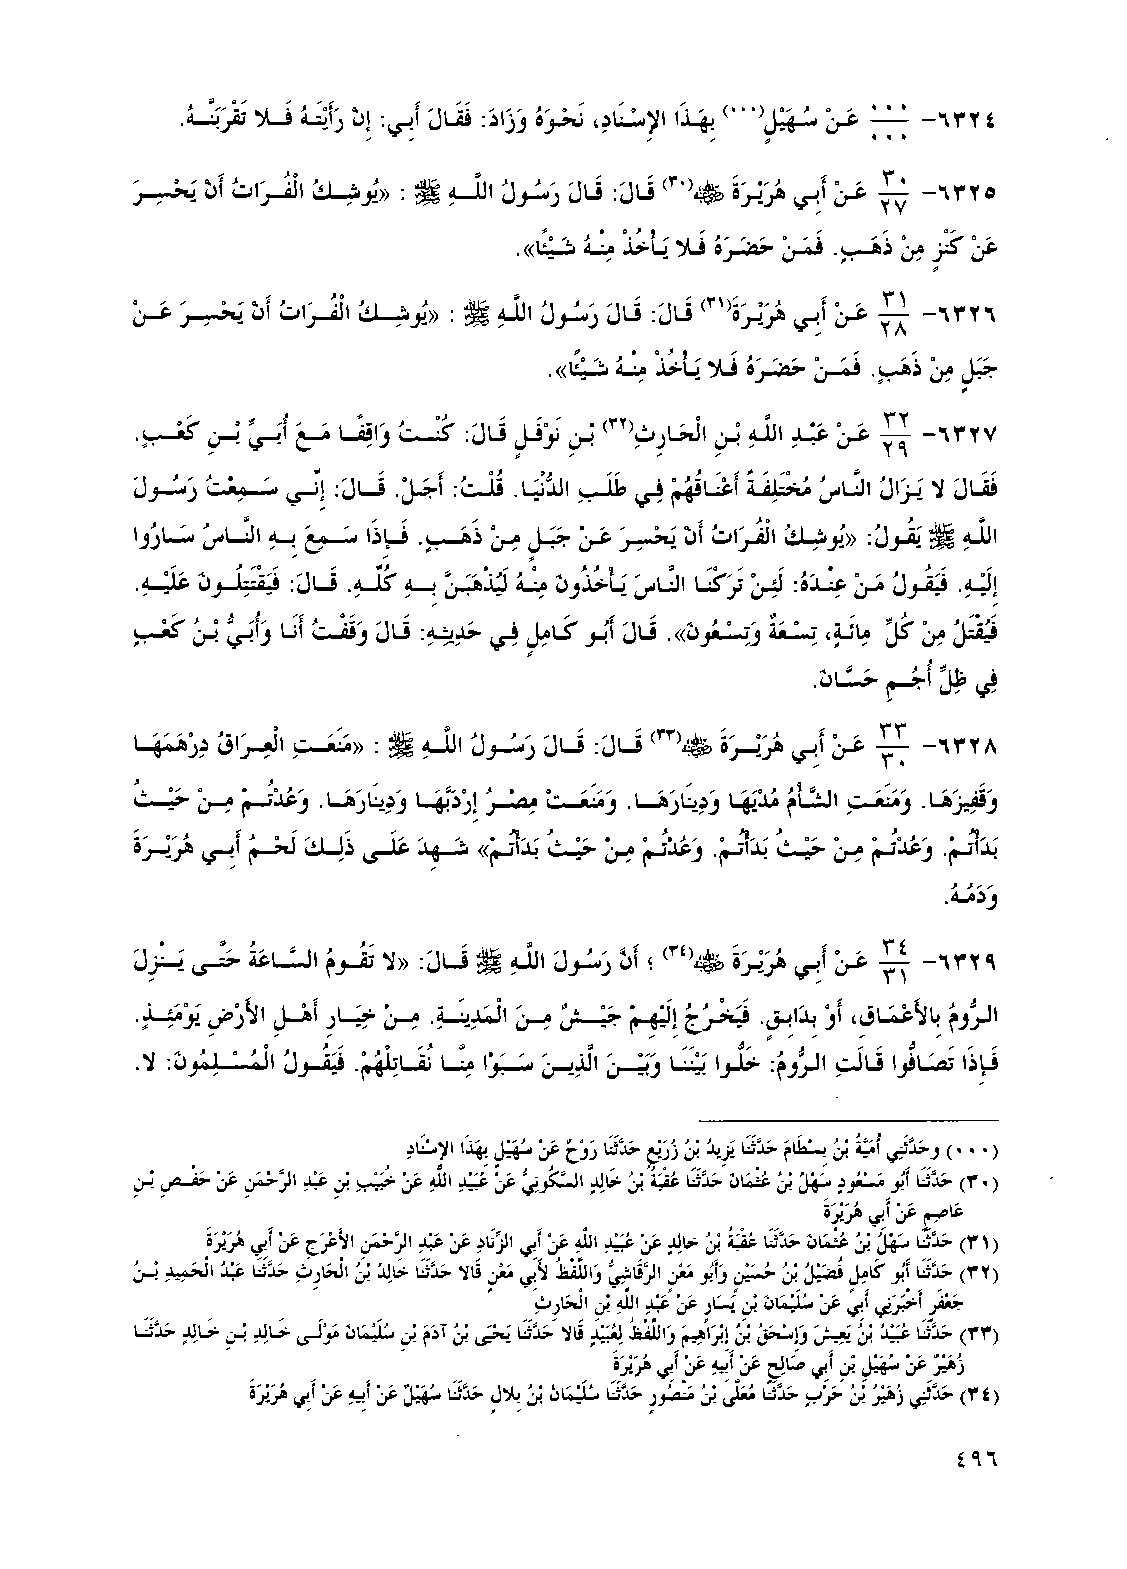 ٦٣٢٤- ٠٠٠/٠٠٠ عَنْ سُهَيْلٍ(٠٠٠) بِهَذَا الإِسْنَادِ، نَحْوَهُ وَزَادَ: فَقَالَ أَبِي: إِنْ رَأَيْتَهُ فَلا تَقْرَبَنَّهُ.
٦٣٢٥- ٣٠/٢٧ عَنْ أَبِي هُرَيْرَةَ ﷺ(٣٠) قَالَ: قَالَ رَسُولُ اللَّهِ ﷺ : «يُوشِكُ الْفُرَاتُ أَنْ يَحْسِرَ
عَنْ كَنْزٍ مِنْ ذَهَبٍ. فَمَنْ حَضَرَهُ فَلا يَأْخُذْ مِنْهُ شَيْئًا».
٦٣٢٦- ٣١/٢٨ عَنْ أَبِي هُرَيْرَةَ(٣١) قَالَ: قَالَ رَسُولُ اللَّهِ ﷺ : «يُوشِكُ الْفُرَاتُ أَنْ يَحْسِرَ عَنْ
جَبَلٍ مِنْ ذَهَبٍ. فَمَنْ حَضَرَهُ فَلا يَأْخُذْ مِنْهُ شَيْئًا».
٦٣٢٧- ٣٢/٢٩ عَنْ عَبْدِ اللَّهِ بْنِ الْحَارِثِ(٣٢) بْنِ نَوْفَلٍ قَالَ: كُنْتُ وَاقِفًا مَعَ أُبَيِّ بْنِ كَعْبٍ.
فَقَالَ لا يَزَالُ النَّاسُ مُخْتَلِفَةً أَعْنَاقُهُمْ فِي طَلَبِ الدُّنْيَا. قُلْتُ: أَجَلْ. قَالَ: إِنِّي سَمِعْتُ رَسُولَ
اللَّهِ ﷺ يَقُولُ: «يُوشِكُ الْفُرَاتُ أَنْ يَحْسِرَ عَنْ جَبَلٍ مِنْ ذَهَبٍ. فَإِذَا سَمِعَ بِهِ النَّاسُ سَارُوا
إِلَيْهِ. فَيَقُولُ مَنْ عِنْدَهُ: لَئِنْ تَرَكْنَا النَّاسَ يَأْخُذُونَ مِنْهُ لَيُذْهَبَنَّ بِهِ كُلِّهِ. قَالَ: فَيَقْتَتِلُونَ عَلَيْهِ.
فَيُقْتَلُ مِنْ كُلِّ مِائَةٍ، تِسْعَةٌ وَتِسْعُونَ». قَالَ أَبُو كَامِلٍ فِي حَدِيثِهِ: قَالَ وَقَفْتُ أَنَا وَأُبَيُّ بْنُ كَعْبٍ
فِي ظِلِّ أُجُمِ حَسَّانَ.
٦٣٢٨- ٣٣/٣٠ عَنْ أَبِي هُرَيْرَةَ ﷺ(٣٣) قَالَ: قَالَ رَسُولُ اللَّهِ ﷺ : «مَنَعَتِ الْعِرَاقُ دِرْهَمَهَا
وَقَفِيزَهَا. وَمَنَعَتِ الشَّأْمُ مُدْيَهَا وَدِينَارَهَا. وَمَنَعَتْ مِصْرُ إِرْدَبَّهَا وَدِينَارَهَا. وَعُدْتُمْ مِنْ حَيْثُ
بَدَأْتُمْ. وَعُدْتُمْ مِنْ حَيْثُ بَدَأْتُمْ. وَعُدْتُمْ مِنْ حَيْثُ بَدَأْتُمْ» شَهِدَ عَلَى ذَلِكَ لَحْمُ أَبِي هُرَيْرَةَ
وَدَمُهُ.
٦٣٢٩- ٣٤/٣١ عَنْ أَبِي هُرَيْرَةَ ﷺ(٣٤) ؛ أَنَّ رَسُولَ اللَّهِ ﷺ قَالَ: «لا تَقُومُ السَّاعَةُ حَتَّى يَنْزِلَ
الرُّومُ بِالأَعْمَاقِ، أَوْ بِدَابِقٍ. فَيَخْرُجُ إِلَيْهِمْ جَيْشٌ مِنَ الْمَدِينَةِ. مِنْ خِيَارِ أَهْلِ الأَرْضِ يَوْمَئِذٍ.
فَإِذَا تَصَافُّوا قَالَتِ الرُّومُ: خَلُّوا بَيْنَنَا وَبَيْنَ الَّذِينَ سَبَوْا مِنَّا نُقَاتِلْهُمْ. فَيَقُولُ الْمُسْلِمُونَ: لا.
(٠٠٠) وحَدَّثَنِي أُمَيَّةُ بْنُ بِسْطَامَ حَدَّثَنَا يَزِيدُ بْنُ زُرَيْعٍ حَدَّثَنَا رَوْحٌ عَنْ سُهَيْلٍ بِهَذَا الإِسْنَادِ
(٣٠) حَدَّثَنَا أَبُو مَسْعُودٍ سَهْلُ بْنُ عُثْمَانَ حَدَّثَنَا عُقْبَةُ بْنُ خَالِدٍ السَّكُونِيُّ عَنْ عُبَيْدِ اللَّهِ عَنْ خُبَيْبِ بْنِ عَبْدِ الرَّحْمَنِ عَنْ حَفْصِ بْنِ
عَاصِمٍ عَنْ أَبِي هُرَيْرَةَ
(٣١) حَدَّثَنَا سَهْلُ بْنُ عُثْمَانَ حَدَّثَنَا عُقْبَةُ بْنُ خَالِدٍ عَنْ عُبَيْدِ اللَّهِ عَنْ أَبِي الزِّنَادِ عَنْ عَبْدِ الرَّحْمَنِ الأَعْرَجِ عَنْ أَبِي هُرَيْرَةَ
(٣٢) حَدَّثَنَا أَبُو كَامِلٍ فُضَيْلُ بْنُ حُسَيْنٍ وَأَبُو مَعْنٍ الرَّقَاشِيُّ وَاللَّفْظُ لأَبِي مَعْنٍ قَالا حَدَّثَنَا خَالِدُ بْنُ الْحَارِثِ حَدَّثَنَا عَبْدُ الْحَمِيدِ بْنُ
جَعْفَرٍ أَخْبَرَنِي أَبِي عَنْ سُلَيْمَانَ بْنِ يَسَارٍ عَنْ عَبْدِ اللَّهِ بْنِ الْحَارِثِ
(٣٣) حَدَّثَنَا عُبَيْدُ بْنُ يَعِيشَ وَإِسْحَقُ بْنُ إِبْرَاهِيمَ وَاللَّفْظُ لِعُبَيْدٍ قَالا حَدَّثَنَا يَحْيَى بْنُ آدَمَ بْنِ سُلَيْمَانَ مَوْلَى خَالِدِ بْنِ خَالِدٍ حَدَّثَنَا
زُهَيْرٌ عَنْ سُهَيْلِ بْنِ أَبِي صَالِحٍ عَنْ أَبِيهِ عَنْ أَبِي هُرَيْرَةَ
(٣٤) حَدَّثَنِي زُهَيْرُ بْنُ حَرْبٍ حَدَّثَنَا مُعَلَّى بْنُ مَنْصُورٍ حَدَّثَنَا سُلَيْمَانُ بْنُ بِلالٍ حَدَّثَنَا سُهَيْلٌ عَنْ أَبِيهِ عَنْ أَبِي هُرَيْرَةَ
٤٩٦